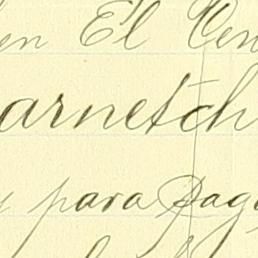 en El Cen
arnetch
y para pag